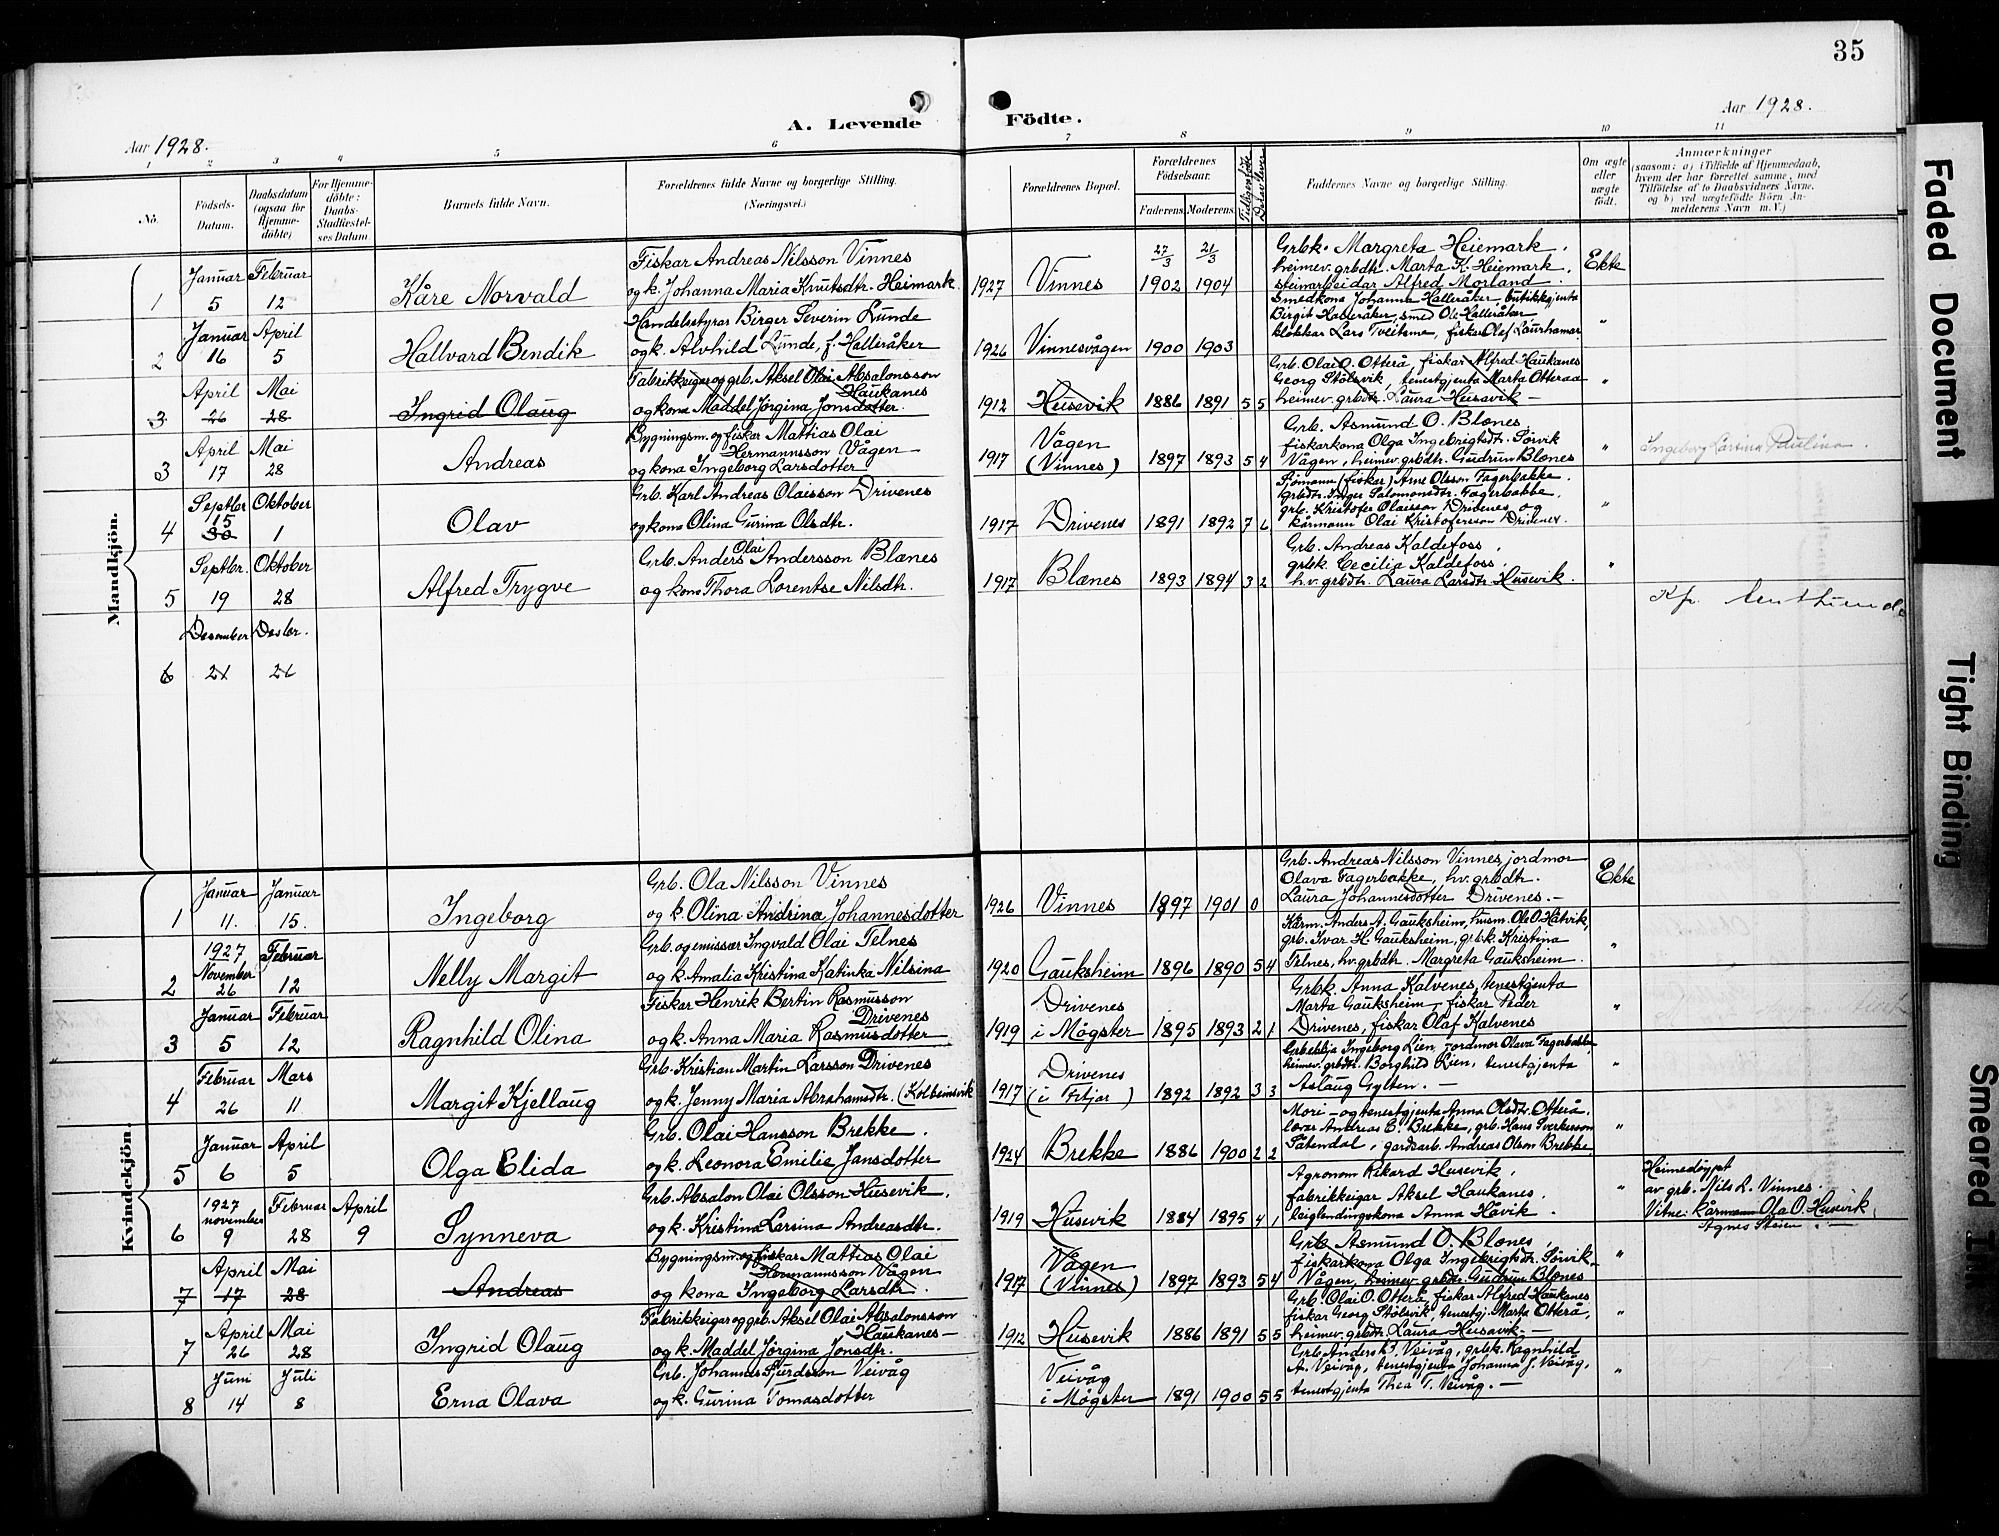 35
A. Levende Födte.
Aar 1928.
Aar 1928.
1 2 3 4 5 6 7 8 9 10 11
No.
Födsels-Datum.
Daabsdatum (ogsaa for Hjemme-döbte)
For Hjemme-döbte: Daabs-Stadfæstelses Datum
Barnets fulde Navn.
Forældrenes fulde Navne og borgerlige Stilling. (Næringsvei.)
Forældrenes Bopæl.
Forældrenes Födselsaar.
Faderens Moderens
Faddernes Navne og borgerlige Stilling.
Om ægte eller uægte födt.
Anmærkninger
(saasom: a) i Tilfælde af Hjemmedaab, hvem der har forrettet samme, med Tilföielse af to Daabsvidners Navne, og b) ved uægtefödte Börn Anmelderens Navn m. V.)
Mandkjön.
1 Januar 5 Februar 12 Kåre Norvald
Fiskar Andreas Nilsson Vinnes
og k. Johanna Maria Knutsdtr. Heimark.
1927 Vinnes 27/3 1902 21/3 1904
Grbk. Margreta Heiemark.
heimev. grbdtr. Marta K. Heiemark.
steinarbeidar Alfred Morland.
Ekte
2 Januar 16 April 5 Hallvard Bendik
Handelsstyrar Birger Severin Lunde
og k. Alvhild Lunde, f. Halleråker
1926 Vinnesvågen 1900 1903
Smedkona Johanna Halleråker, butikkgjenta
Birgit Halleråker, smed Ole Halleråker,
klokkar Lars Tveitane, fiskar Olaf Laurhamar
"
3 April 26 Mai 28 Ingrid Olaug
Fabrikkeigar og grb. Aksel Olai Absalonsson
Haukanes
og kona Maddel Jörgina Jonsdotter.
1912 Husevik 1886 1891 5 5
Grb. Olai O. Otterå, fiskar Alfred Haukanes
Georg Stölsvik, tenestgjenta Marta Otteraa
heimev. grbdtr. Laura Husavik —
"
3 April 17 Mai 28 Andreas
Bygningsm. og fiskar Mattias Olai
Hermannsson Vågen
og kona Ingeborg Larsdotter
1917 Vågen (Vinnes) 1897 1893 5 4
Grb. Asmund O. Blænes,
fiskarkona Olga Ingebrigtsdtr. Sörvik
Vågen, heimev. grbdtr. Gudrun Blænes
"
Ingeborg Larsina Paulina.
4 Septbr 15 30 Oktober 1 Olav
Grb. Karl Andreas Olaisson Drivenes
og kona Olina Gurina Olsdtr.
1917 Drivenes 1891 1892 7 6
Sjömann (fiskar) Arne Olsson Fagerbakke.
Grbdtr. Inger Salomonsdtr. Fagerbakke.
grb. Kristofer Olaisson Drivenes og
kårmann Olai Kristofersson Drivenes.
"
5 Septbr. 19 Oktober 28 Alfred Trygve
Grb. Anders Olai Andersson Blænes
og kona Thora Lorentse Nilsdtr.
1917 Blænes 1893 1894 3 2
Grb. Andreas Kaldefoss,
grbk. Cecilia Kaldefoss,
h.v. grbdtr. Laura Larsdtr. Husevik.
"
6 Desember 21 Desbr. 21
Kvindekjön.
1 Januar 11. Januar 15. Ingeborg
Grb. Ola Nilsson Vinnes
og k. Olina Andrina Johannesdotter
1926 Vinnes 1897 1901 0
Grb. Andreas Nilsson Vinnes, jordmor
Olava Fagerbakke, hv. grbdtr.
Laura Johannesdotter Drivenes. —
Ekte
2 1927 November 26 Februar 12 Nelly Margit
Grb. og emissær Ingvald Olai Telnes
og k. Amalia Kristina Katinka Nilsina
1920 Gauksheim 1896 1890 5 4
Kårm. Anders A. Gauksheim, husm. Ole O. Håtvik,
grb. Ivar H. Gauksheim, grbk. Kristina
Telnes, hv. grbdtr. Margreta Gauksheim.
"
3 Januar 5 Februar 12 Ragnhild Olina
Fiskar Henrik Bertin Rasmusson
Drivenes
og k. Anna Maria Rasmusdotter
1919 Drivenes i Mögster 1895 1893 2 1
Grbk. Anna Kalvenes, tenestgjenta
Marta Gauksheim, fiskar Peder
Drivenes, fiskar Olaf Kalvenes
"
4 Februar 26 Mars 11 Margit Kjellaug
Grb. Kristian Martin Larsson Drivenes
og k. Jenny Maria Abrahamsdtr. (Kolbeinsvik
1917 Drivenes (i Fitjar) 1892 1892 3 3
Grbehkja Ingeborg Lien, jordmor Olava Fagerbakke,
heimev. grbdtr. Borghild Lien, tenestgjenta
Aslaug Gylten. —
"
5 Januar 6 April 5 Olga Elida
Grb. Olai Hansson Brekke.
og k. Leonora Emilie Jansdotter
1924 Brekke 1886 1900 2 2
Mori – og tenestgjenta Anna Olsdtr. Otterå.
lærar Andreas E. Brekke, grb. Hans Sverkesson
Sætendal, gardsarb. Andreas Olson Brekke
"
6 1927 november 9 Februar 28 April 9 Synneva
Grb. Absalon Olai Olsson Husevik.
og k. Kristina Larsina Andreasdtr.
1919 Husevik 1884 1895 4 1
Agronom Rikard Husevik,
fabrikkeigar Aksel Haukanes.
leiglendingskona Anna Håvik.
"
Heimedöypt
av grb. Nils R. Vinnes.
Vitne: kårmann Ola O. Husevik,
7 April 17 Mai 28 Andreas
Bygningsm. og fiskar Mattias Olai
Hermannsson Vågen
og kona Ingeborg Larsdtr.
1917 Vågen (Vinnes) 1897 1893 5 4
Grb. Asmund O. Blænes,
fiskarkona Olga Ingebrigtsdtr. Sörvik
Vågen, heimev. grbdtr. Gudrun Blænes
"
7 April 26 Mai 28 Ingrid Olaug
Fabrikkeigar og grb. Aksel Olai Absalonsson
Haukanes —
og k. Maddel Jörgina Jonsdtr.
1912 Husevik 1886 1891 5 5
Grb. Olai O. Otterå, fiskar Alfred Haukanes
fiskar Georg Stölsvik, tenestgj. Marta Otterå,
heimev. grbdtr. Laura Husavik. —
"
8 Juni 14 Juli 8 Erna Olava
Grb. Johannes Sjurdsson Veivåg
og k. Gurina Tomasdotter
Veivåg i Mögster 1891 1900 5 5
Grb. Anders J. Veivåg, grbk. Ragnhild
A. Veivåg, tenestgjenta Johanna J. Veivåg,
tenestgjenta Thea T. Veivåg. —
"
Faded Document
Tight Binding
Smeared Ink